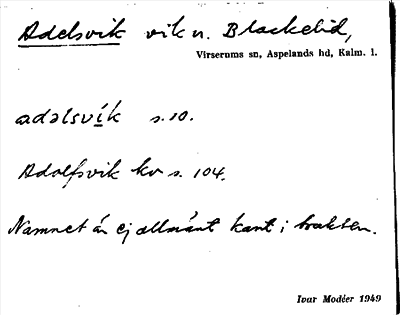 Adelsvik vik n. Blackelid,
Virserums sn, Aspelands hd, Kalm. l.
adəlsvík s. 10.
Adolfsvik kv s. 104.
Namnet är ej allmänt känt i trakten.
Ivar Modéer 1949